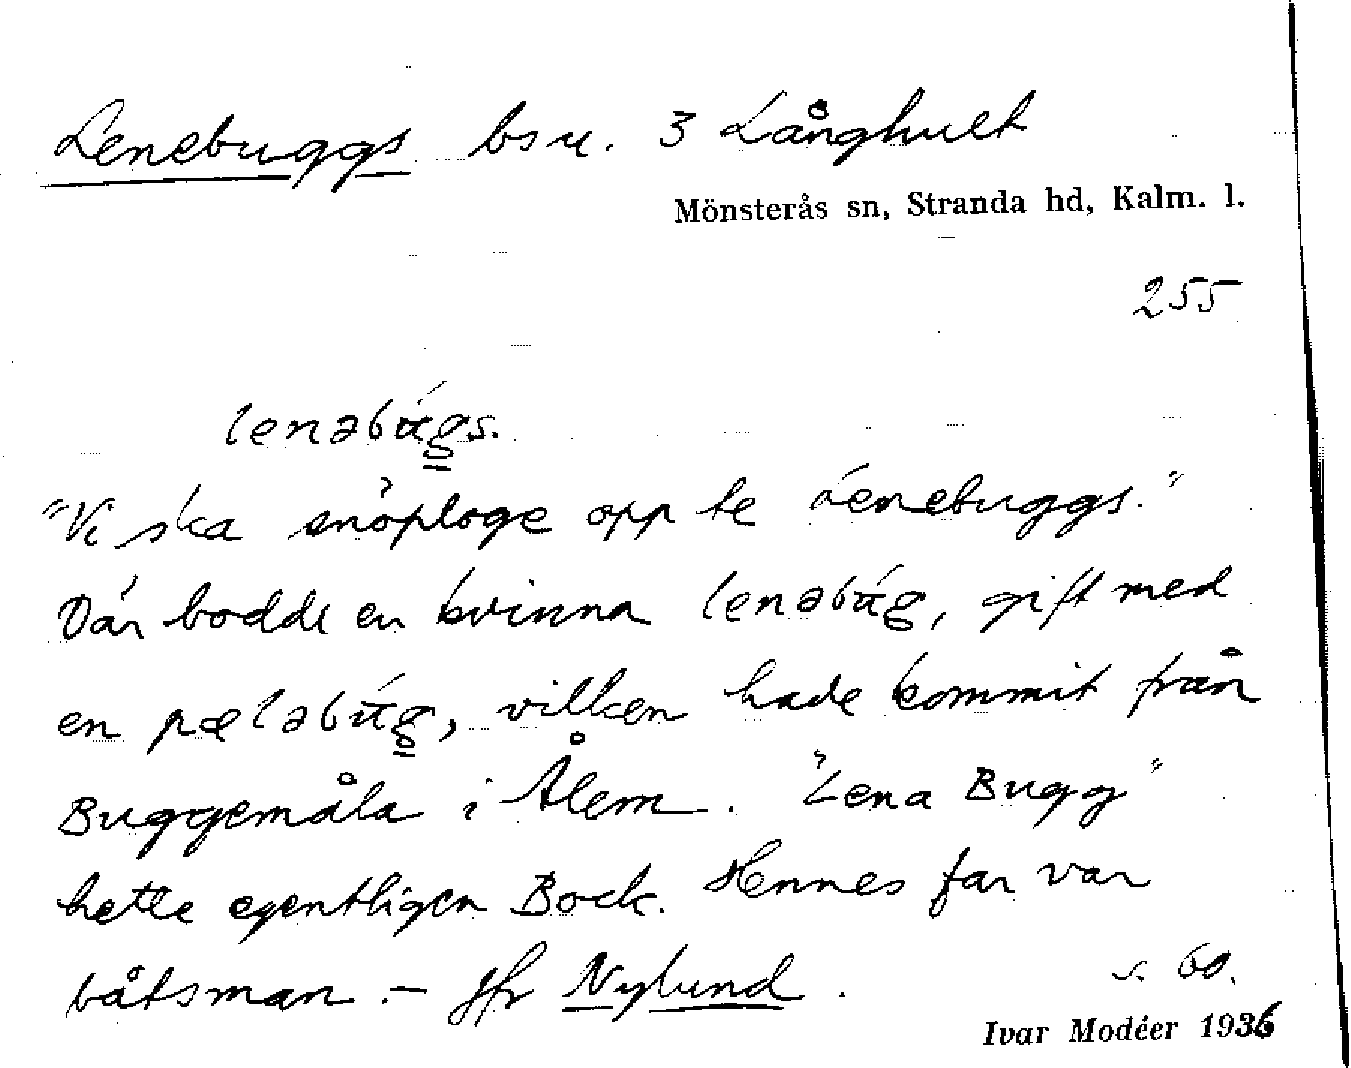 Lenebuggs bsu. 3 Långhult
Mönsterås sn, Stranda hd, Kalm. l.
255
lenəbúgs.
"Vi ska snöploge opp te Lenebuggs."
Där bodde en kvinna lenəbúg, gift med
en pæləbúg, vilken hade kommit från
Buggemåla i Ålem. "Lena Bugg"
hette egentligen Bock. Hennes far var
båtsman. – Jfr Nylund.
s. 60.
Ivar Modéer 1936